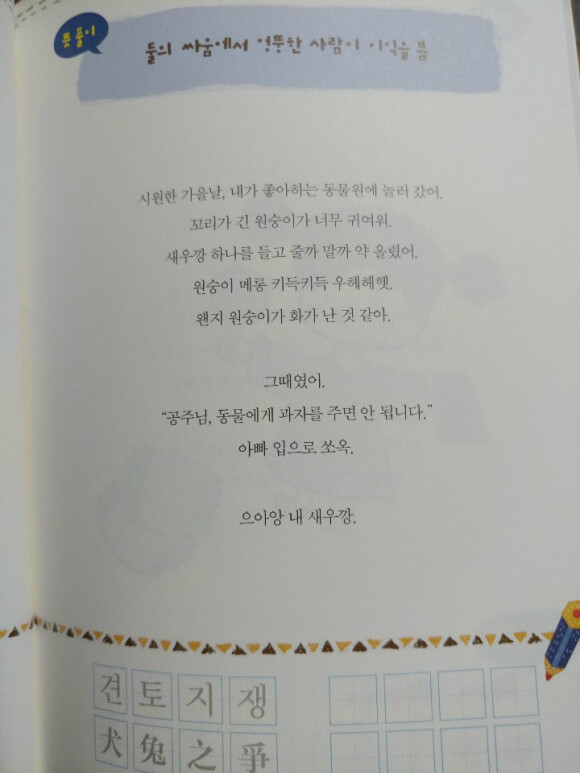 뜻풀이
둘의 싸움에서 엉뚱한 사람이 이익을 봄
시원한 가을날, 내가 좋아하는 동물원에 놀러 갔어.
꼬리가 긴 원숭이가 너무 귀여워.
새우깡 하나를 들고 줄까 말까 약 올렸어.
원숭이 메롱 키득키득 우헤헤헷.
왠지 원숭이가 화가 난 것 같아.
그때였어.
“공주님, 동물에게 과자를 주면 안 됩니다.”
아빠 입으로 쏘옥.
으아앙 내 새우깡.
견토지쟁
犬兔之爭